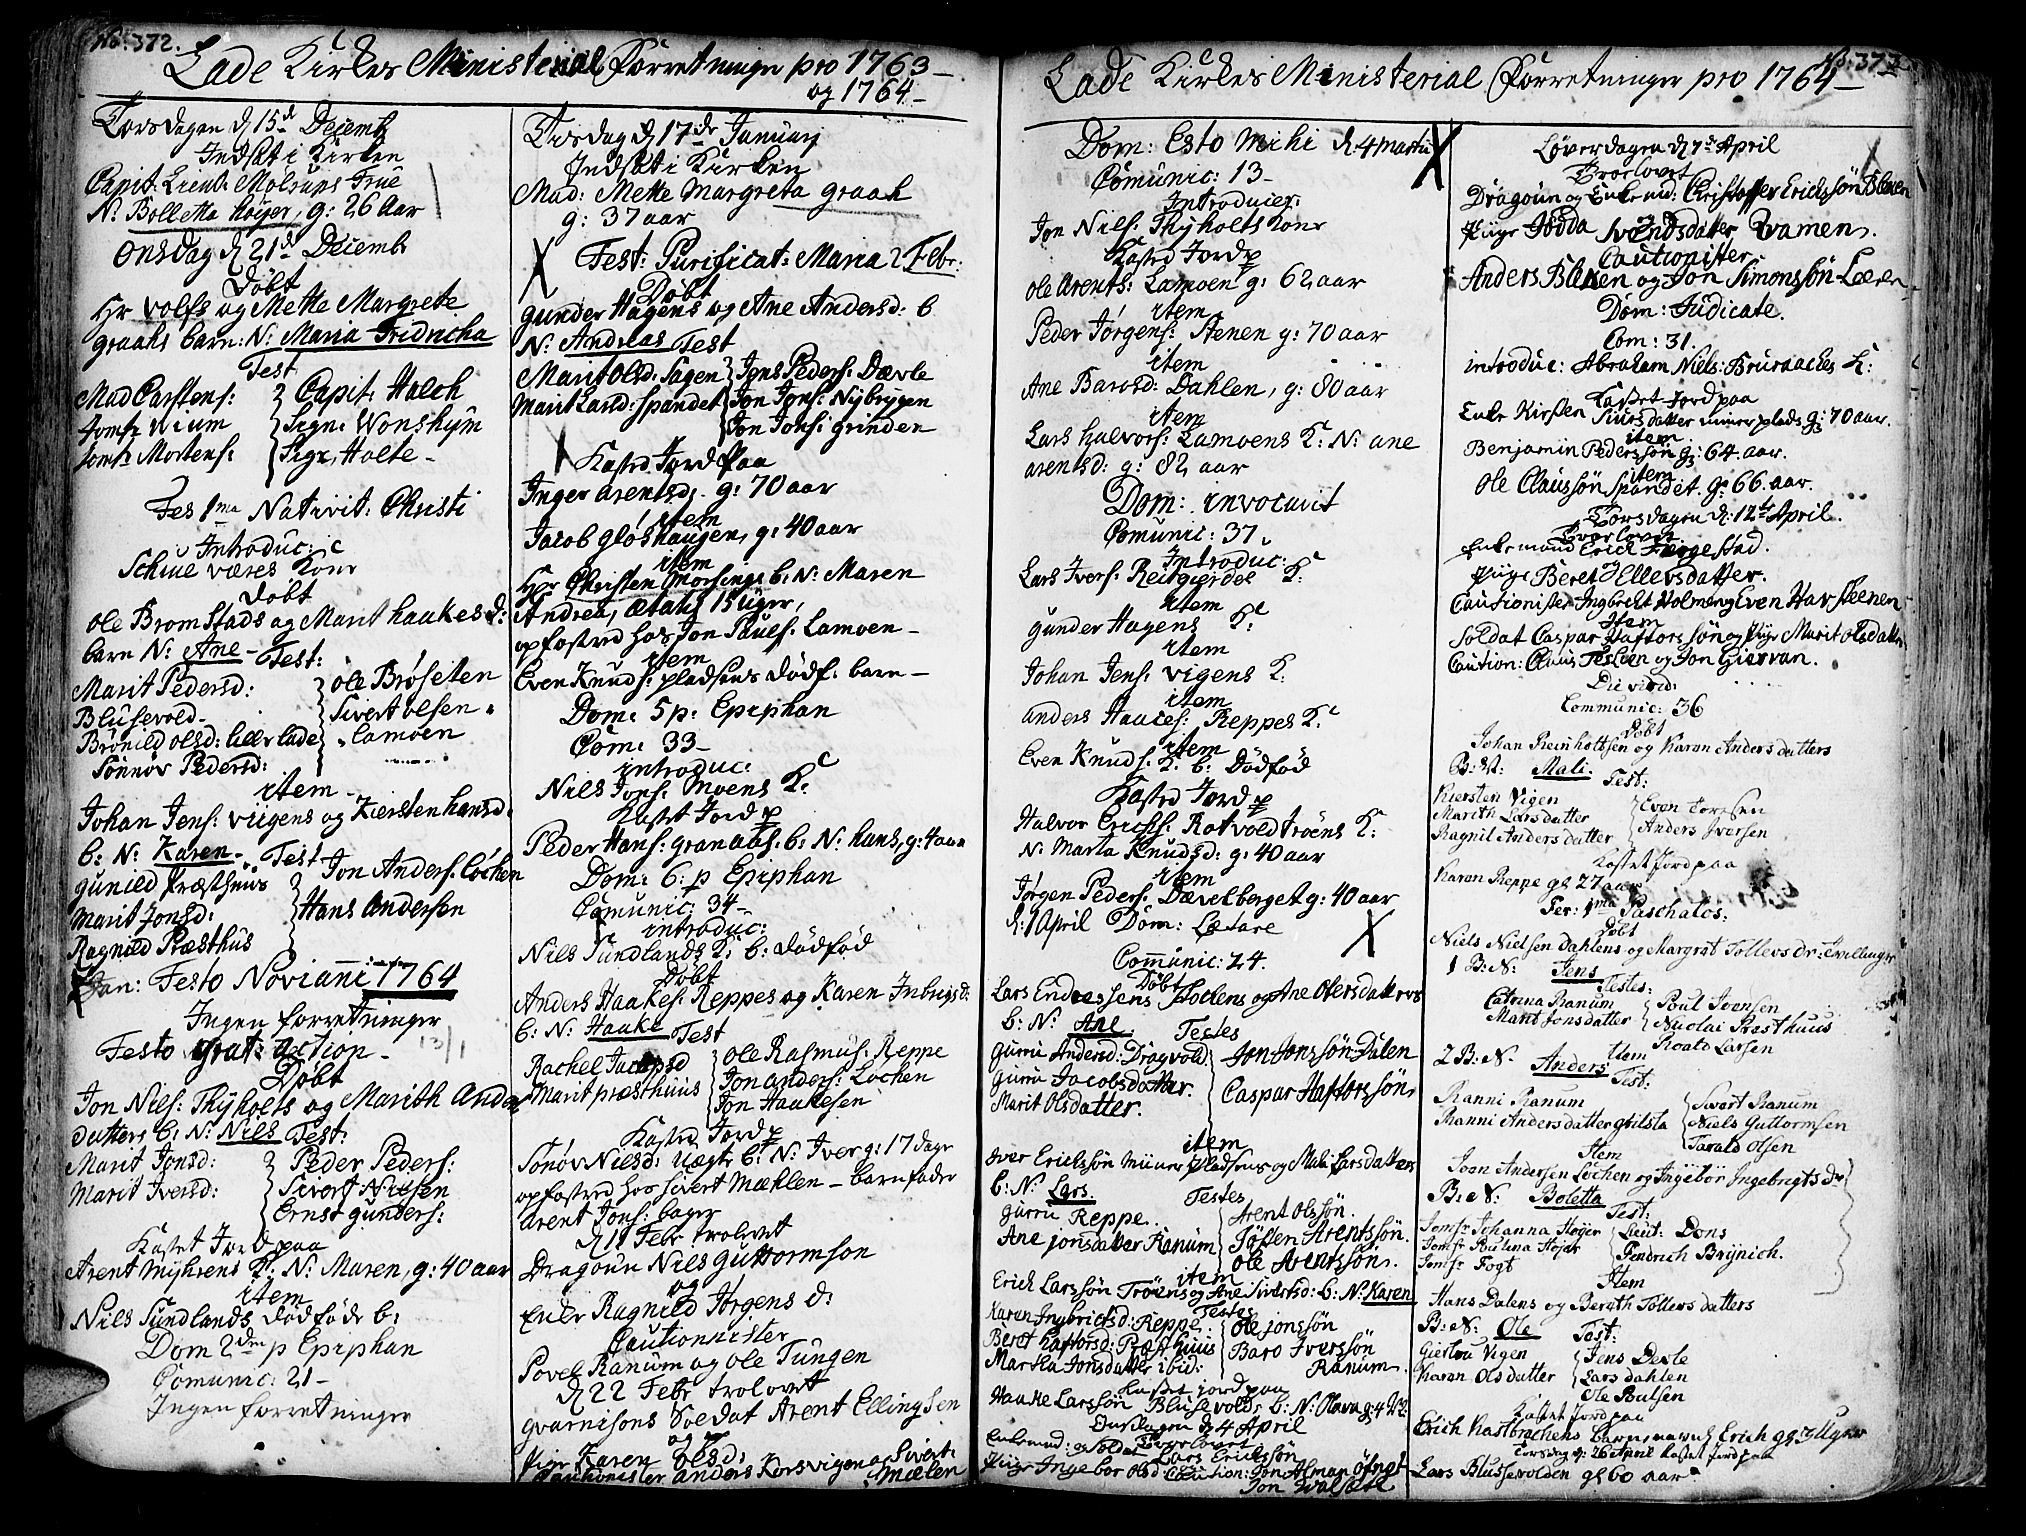 No. 372.
Lade Kirkes Ministerial Forretninger pro 1763
og 1764
Torsdagen d 15de Decemb
Indsat i Kirken
Capit: Lieut: Molsups Frue
N: Bolletta Høyer, g: 26 Aar
Onsdag d 21de Decemb
Døbt
Hr Volfs og Mette Margrete
graahs barn: N: Maria Fridricha
Test
Mad Carstens: Capit: Halch
Jomfr Wium Sign: Wonshym
Jomfr Mortens: Sigr. Holte
Fes 1ma Nativit: Christi
Introduc:
Schive væres Kone
Døbt
Ole Bromstads og Marit haakesd:
barn N: Ane Test:
Marit Pedersd: Ole Brøseten
Blusevold Sivert olsen
Brønild olsd: lille lade Lamoen
Sønnøv Pedersd:
item
Johan Jens: viigens og Kiersten hansd:
b: N: Karen Test
gunild Præsthuus Jon Anders: Løchen
Marit Jonsd: Hans Andersen
Ragnild Præsthus
Jan: Festo Novi anni 1764
Ingen forretninger
Festo grat: action 13/1
Døbt
Jon Niels: Thyholts og Marith Anders
datters b: N: Niels Test:
Marit Jonsd: Peder Peders:
Marit Iversd: Sivert Nielsen
Ernst gunders:
Kastet Jord paa
Arent myhrens K: N: Maren, g: 40 aar
item
Niels Sundlands dødføde b:
Dom 2den p Epiphan
Comunic: 21
Ingen forretninger
Tirsdag d 17de Januarij
Indsat i Kirken
Mad: Mette Margreta graah
g: 37 aar
Fest: Purificat: Maria 2 Febr:
Døbt
gunder Hagens og Ane Andersd: b
N: Andreas Test
Marit Olsd: Sagen Jens Peders: Devle
Marit Larsd: Spandet Jon Jons: Nybrygen
Jon Jons: grinden
Kasted Jord Paa
Inger arentsd: g: 70 aar
item
Jacob gløshaugen, g: 40 aar
item
Hr Christen Morsings b: N: Maren
Andrea, ætatis 15 uger,
opfostred hos Jon Pouels: Lamoen
item
Even Knuds: pladsens dødf: barn
Dom: 5 p: Epiphan
Com: 33
introduc:
Niels Jons: Moens K:
Kastet Jord p
Peder Hans: granaas: b: N: hans, g: 4 aar
Dom: 6: p Epiphan
Comunic: 34
introduc:
Niels Sundlands K: b: dødfød
Døbt
Anders Haakes: Reppes og Karen Inbrigsd:
b: N: Haake Test
Rachel Jacobsd Ole Rasmus: Reppe
Marit præsthuus Jon anders: Lochen
Jon Haakesen
Kasted Jord p
Sønov Nielsd: uægte b: N: Iver g: 17 dage
opfostred hos Sivert Mæhlen barnfader
arent Jons:
d 11 Febr trolovet
Dragoun Niels Guttormson
og
Enke Ragnild Jørgens d:
Cautionister
Povel Ranum og ole Tungen
d 22 Febr trolovet
gvarnisons Soldat Arent Ellingsen
og
Pige Karen olsd:
Cautionister anders Korsvigen og Sivert
Mælen
No. 373
Lade Kirkes Ministerial Forretninger pro 1764
Dom: Esto Mihi d 4 Martii
Comunic: 13
Introduc:
Jon Niels: Thyholts Kone
Kasted Jord p
Ole Arents: Lamoen g: 62 aar
item
Peder Jørgens: Stenen g: 70 aar
item
Ane Barosd: Dahlen, g: 80 aar
item
Lars halvors: Lamoens K: N: ane
arentsd: g: 82 aar
Dom: invocavit
Comunic: 37
Introduc:
Lars Ivers: Reitgierdet K:
item
gunder Hagens K:
item
Johan Jens: vigens K:
item
anders Haaces: Reppes K:
item
Even Knuds: K: b: dødfød
Kasted Jord p
Halvor Erichs: Rotvoldtrøens K:
N: Marta Knudsd: g: 40 aar
item
Jørgen Peders: Dævelberget g: 40 aar
d: 1 April Dom: Lætare
Comunic: 24.
Døbt
Lars Endressens Moelens og Ane Olersdatters
b: N: Ane. Testes
Gurru Andersd: Dragvold Jon Jonssøn Dalen
Gurru Jacobsdatter. Caspar Haftorssøn
Marit Olsdatter.
item
Iver Erichssøn Miiner pladsens og Mali Larsdatters
b: N: Lars. Testes
Gurru Reppe. Arent Olssøn.
Ane Jonsdatter Ranum Joften Arentssøn.
Ole Arentssøn.
item
Erich Larssøn Trøens og Ane Sivertsd: b: N: Karen
Testes
Karen Ingbrictsd: Reppe. Ole Jonssøn
Beret haftorsd: Præsthuus Baro Iverssøn
Martha Jonsdatter ibid: Ranum.
Kastet jord paa
Haake Larssøn Blusevolds b: N: Olava g: 4
Onsdagen d 4 April
Troelovet
Enkemand: og Soldat Lars Erichssøn
Pige Ingebor Olsd: Caution: Jon Alman
Jon Valsæte
Løverdagen d 7de April
Trorlovet
Dragoun og Enkemd: Christoffer Erichssøn Bleken
Pige Jødda Svendsdatter Qvamen.
Cautionister
Anders Bleken og Jon Simonssøn Leeren
Dom: Judicate.
Com: 31.
introduc: Abraham Niels: Bruraches K:
Kastet Jord paa
Enke Kirsten Siursdatter minerplads g: 70 aar.
item
Benjamin Pederssøn g: 64. aar.
item
Ole Claussøn Spandet. g: 66. aar.
Torsdagen d: 12te April.
Trorlovet
Enkemand Erich Fergestad.
Pige Beret Ellevsdatter.
Cautionister Ingbricht Holmen og Even Havsteenen
Item
Soldat Caspar Haftorssøn og Pige Marit Olsdatter
Caution: Claus Teslien og Jon Giervan.
Die virid:
Communic: 36
Døbt
Johan Reinholtsen og Karen Anders datters
B: N: Mali. Test:
Kiersten Vigen Even Torssen
Marith Larsdatter Anders Iversen
Ragnil Andersdatter
Kastet Jord paa
Karen Reppe g: 27 aar
Fer: 1ma Paschatos:
Døbt
Niels Nielsen Dahlens og Margrot Tollevs dr:
1 B: N: Jens
Testes:
Catrina Ranum Poul Svensen
Marit Jonsdatter Nicolai Presthuus
Roald Larsen
Item
2 B: N: Anders
Test:
Ranni Ranum Sivert Ranum
Ranni Andersdatter gtilsta Niels Guttormsen
Tarald Olsen
Item
Joan Andersen Løchen og Ingebor Ingebrigts dr
B: N: Boletta
Test:
Jomfr Johanna Høger Lieut: Dons
Jomfr Paulina Højer Fendrich Brynich.
Jomfr Fogt
Item
Hans Dalens og Berath Tollers datters
B: N: Ole Test:
Giertru Vigen Jens Devle
Karen Olsdatter Lars dahlen
Ole Poulsen
Kastet Jord paa
Erich Kastbrachens Barn, navnl. Erich g: 3 Uger
Torsdag d: 26 April kastet jord paa
Lars Blussevolden g: 60 aar